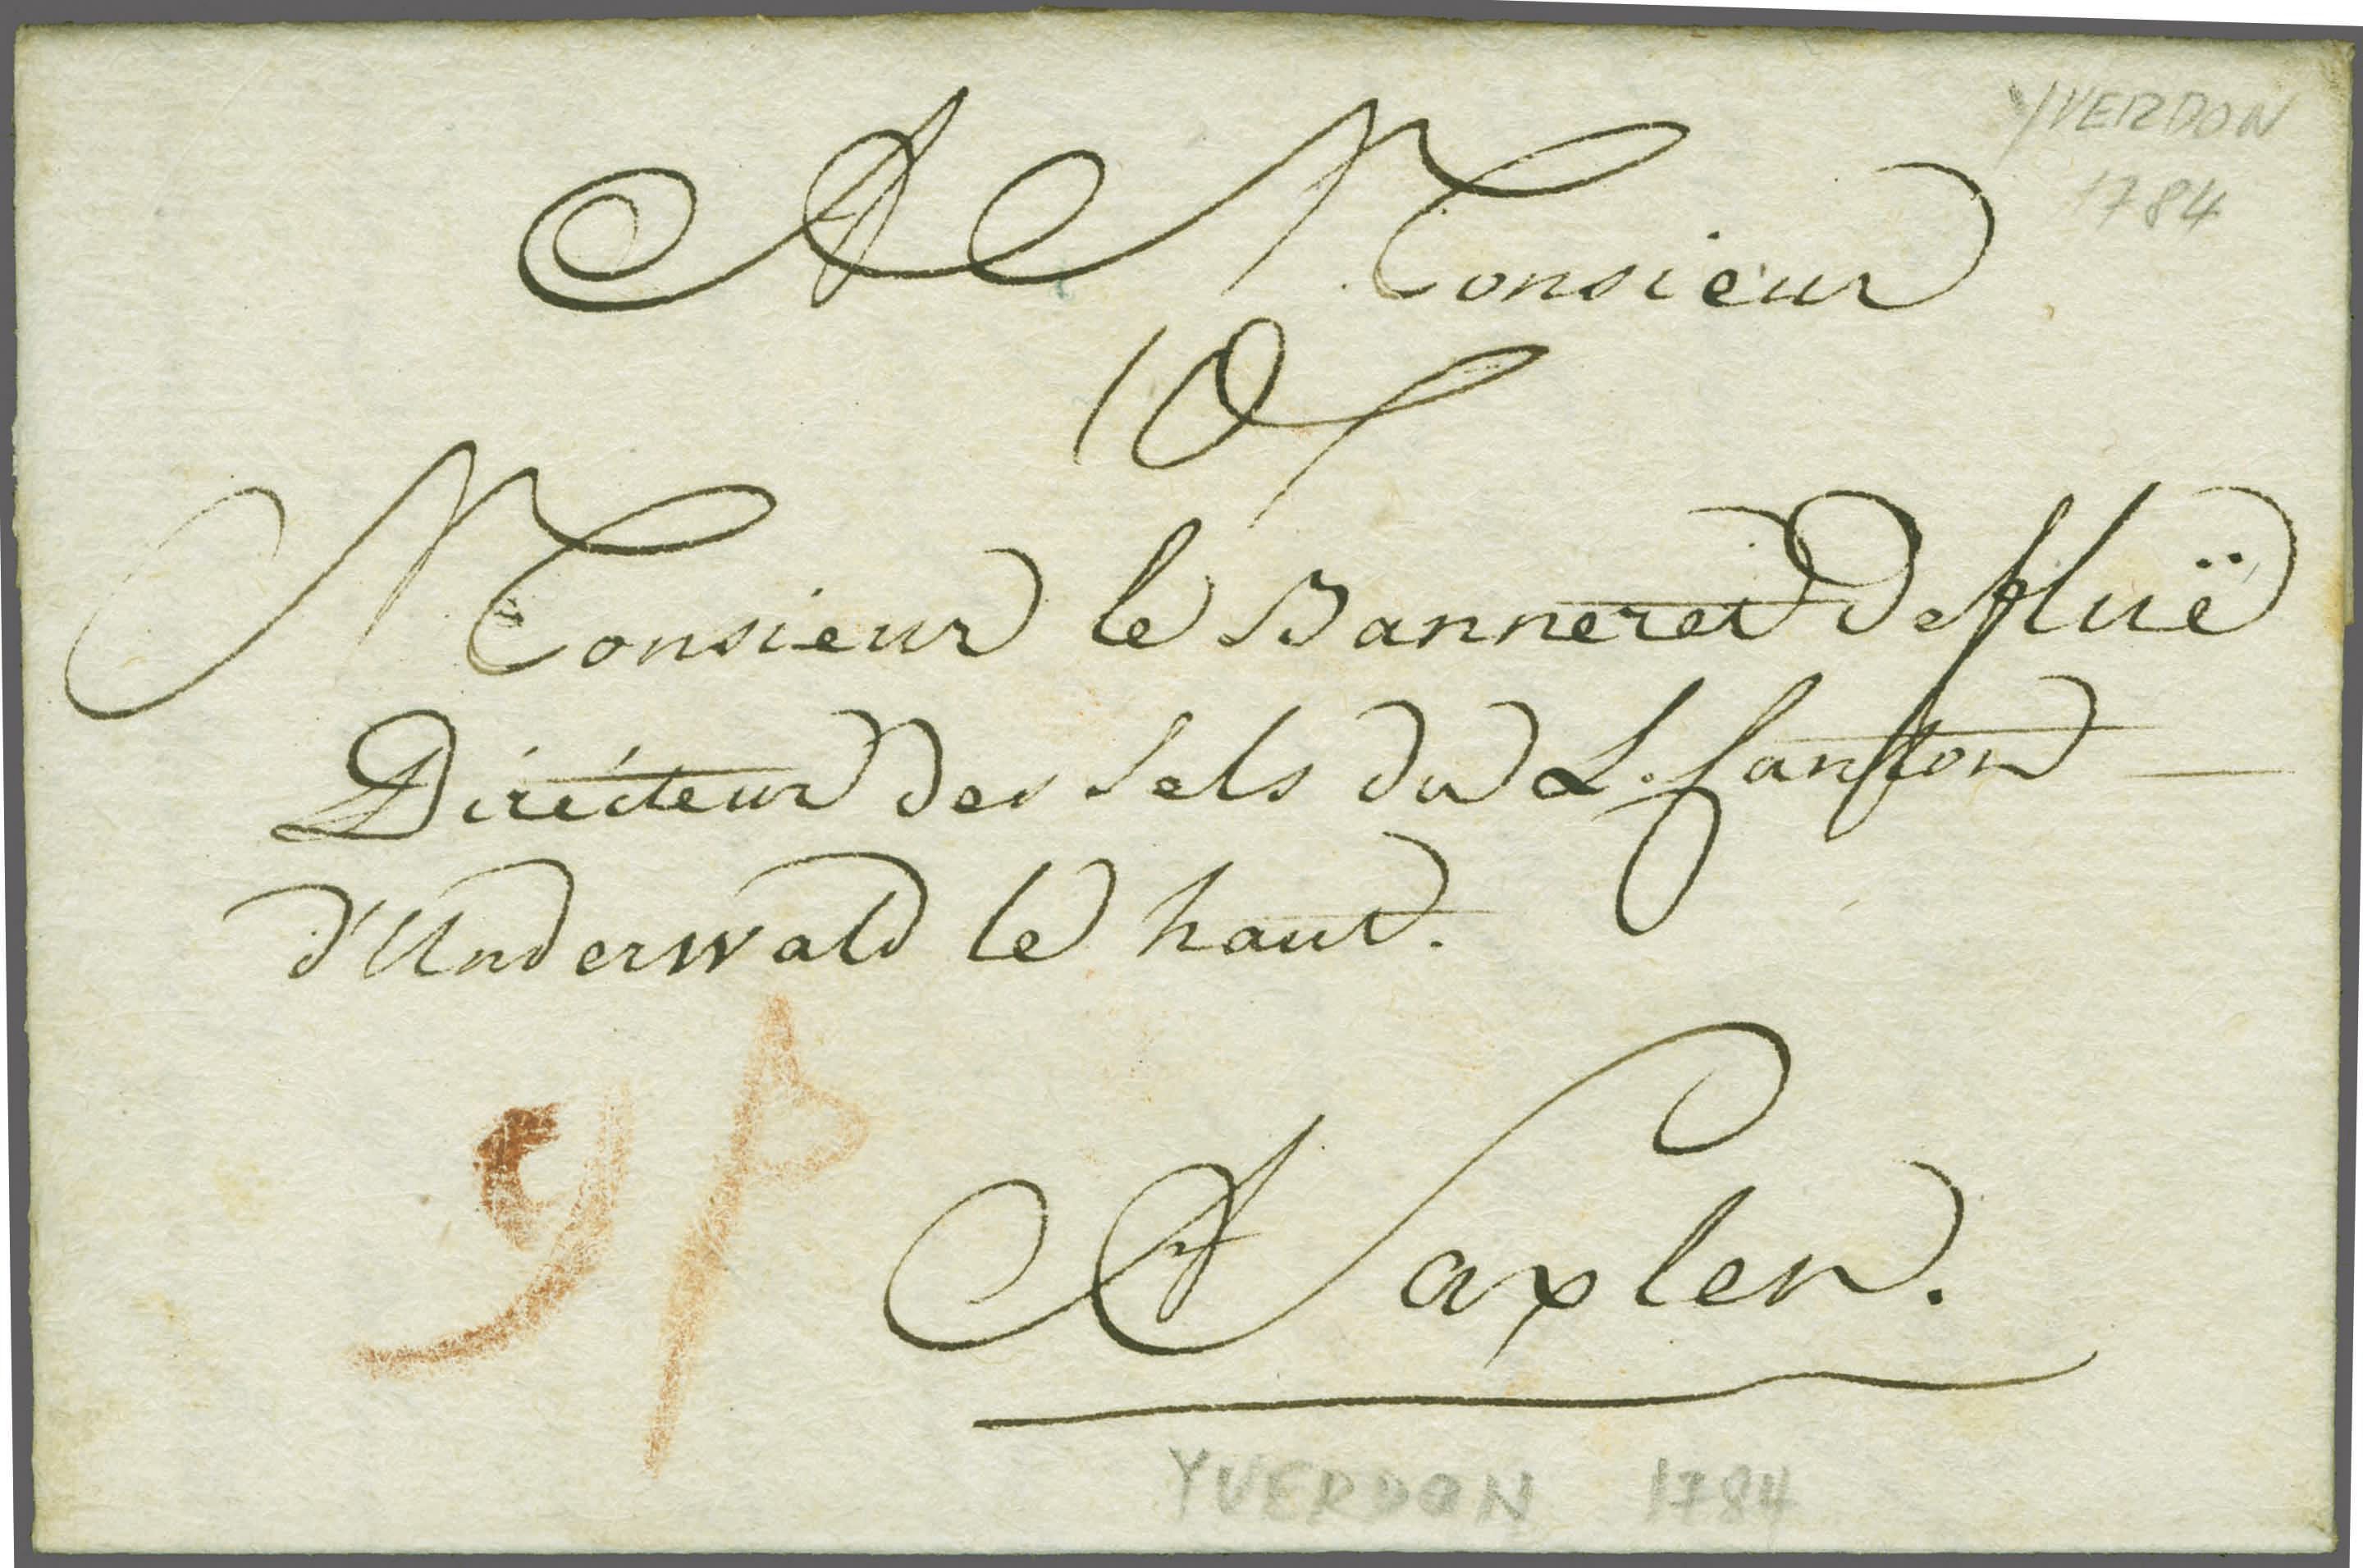 YVERDON
1784
A Monsieur
Monsieur le Banneret De flüe
Directeur des Sels du L. Canton
d'Underwald le haut.
9
A Saxlen.
YVERDON 1784